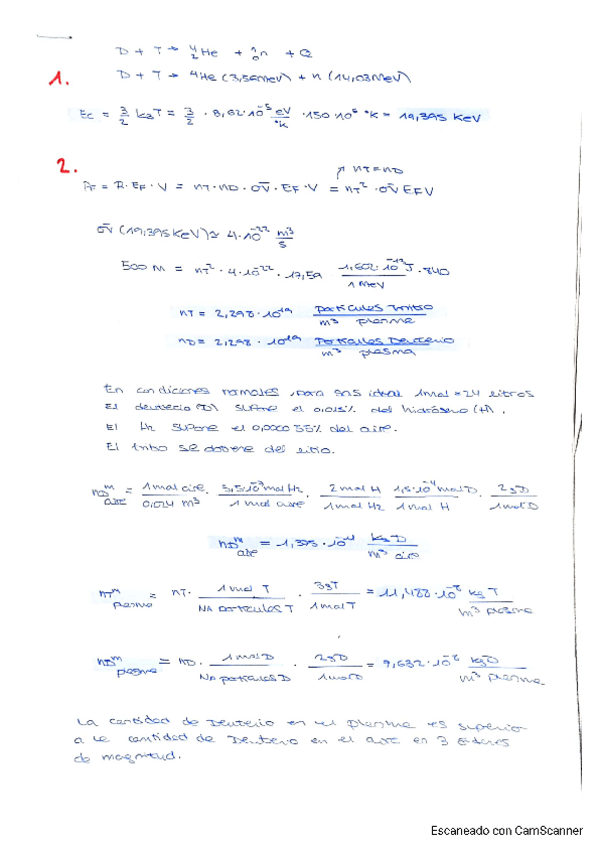 D + T → ⁴₂He + ¹₀n + Q
1.
D + T → ⁴He (3,56MeV) + n (14,03MeV)
Ec = 3/2 kBT = 3/2 · 8,62·10⁻⁵ eV/°K · 150·10⁶ °K = 19,395 KeV
2.
↗ nT=nD
PF = R·EF·V = nT·nD·σ̄v·EF·V = nT²·σ̄v EF V
σ̄v (19,395KeV) ≈ 4·10⁻²² m³/s
500 M = nT²·4·10⁻²²·17,59 1,602·10⁻¹³J/1 MeV ·840
nT = 2,298·10¹⁹ partículas Tritio/m³ plasma
nD = 2,298·10¹⁹ Partículas Deuterio/m³ plasma
En condiciones normales, para gas ideal 1mol = 24 litros
El deuterio (D) supone el 0,015% del hidrógeno (H).
El H₂ supone el 0,000055% del aire.
El tritio se obtiene del litio.
nDᵐ aire = 1mol aire/0,024 m³ · 5,5·10⁻⁷mol H₂/1 mol aire · 2mol H/1mol H₂ 1,5·10⁻⁴mol D/1mol H · 2gD/1molD
nDᵐ aire = 1,375·10⁻¹¹ kg D/m³ aire
nTᵐ plasma = nT· 1mol T/NA partículas T · 3gT/1molT = 11,488·10⁻⁸ kg T/m³ plasma
nDᵐ plasma = nD· 1molD/NA partículas D · 2gD/1molD = 7,632·10⁻⁸ kgD/m³ plasma
La cantidad de Deuterio en el plasma es superior
a la cantidad de Deuterio en el aire en 3 órdenes
de magnitud.
Escaneado con CamScanner